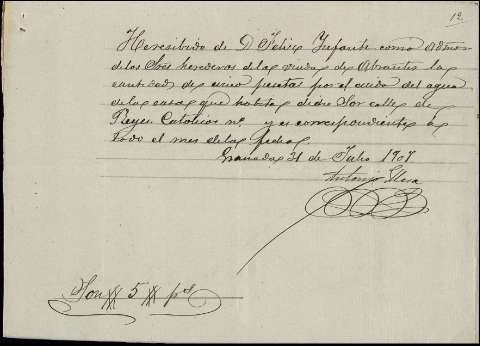 12
He recibido de D Felix Infante como Admor
de los Sres herederos de la viuda de Abrantes la
cantidad de cinco pesetas por el cuido del agua
de la casa que habita dicho Sor calle de
Reyes Catolicos nº y es correspondiente a
todo el mes de la fecha
Granada 31 de Julio 1908
Antonio
Son ## 5 ## pts